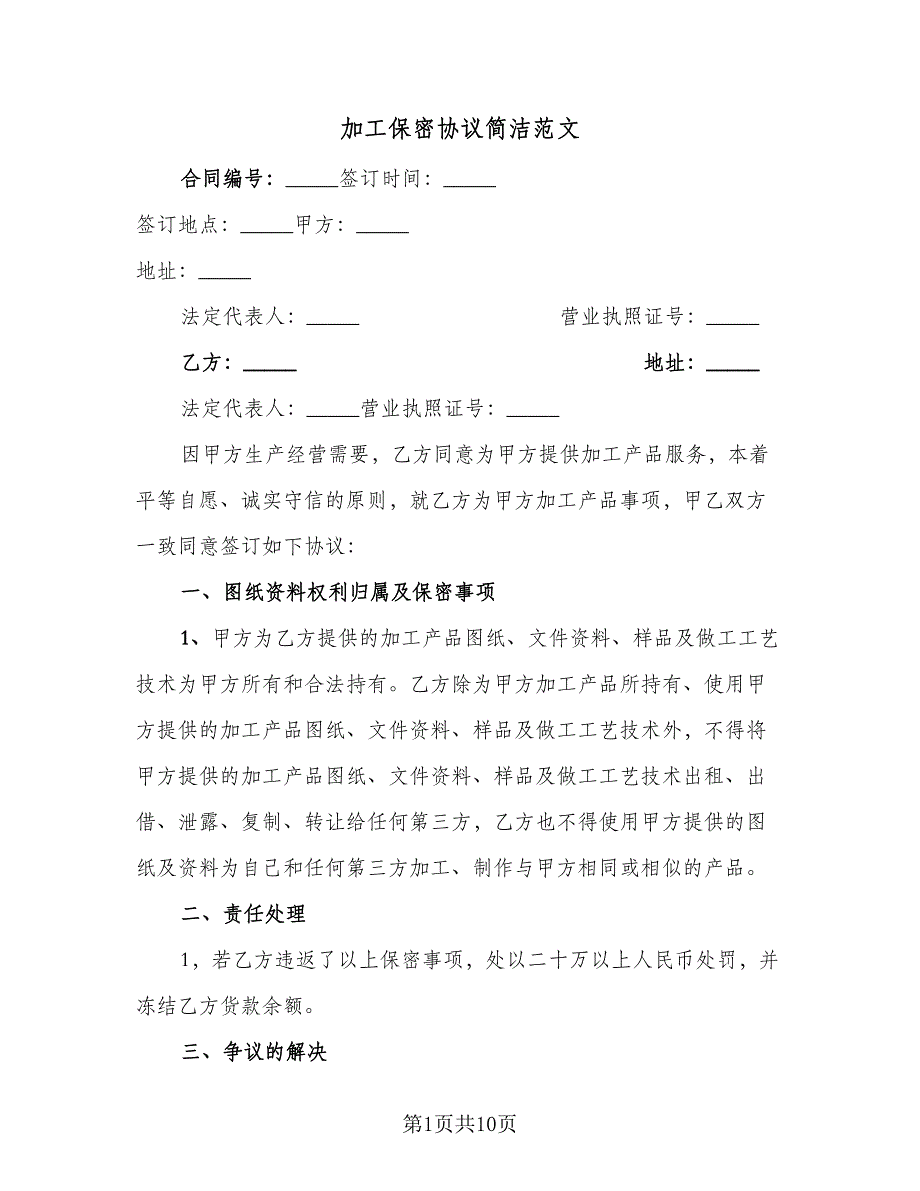 加工保密协议简洁范文
合同编号：_____签订时间：_____
签订地点：_____甲方：_____
地址：_____
法定代表人：_____ 营业执照证号：_____
乙方：_____ 地址：_____
法定代表人：_____营业执照证号：_____
因甲方生产经营需要，乙方同意为甲方提供加工产品服务，本着
平等自愿、诚实守信的原则，就乙方为甲方加工产品事项，甲乙双方
一致同意签订如下协议：
一、图纸资料权利归属及保密事项
1、甲方为乙方提供的加工产品图纸、文件资料、样品及做工工艺
技术为甲方所有和合法持有。乙方除为甲方加工产品所持有、使用甲
方提供的加工产品图纸、文件资料、样品及做工工艺技术外，不得将
甲方提供的加工产品图纸、文件资料、样品及做工工艺技术出租、出
借、泄露、复制、转让给任何第三方，乙方也不得使用甲方提供的图
纸及资料为自己和任何第三方加工、制作与甲方相同或相似的产品。
二、责任处理
1，若乙方违返了以上保密事项，处以二十万以上人民币处罚，并
冻结乙方货款余额。
三、争议的解决
第1页共10页